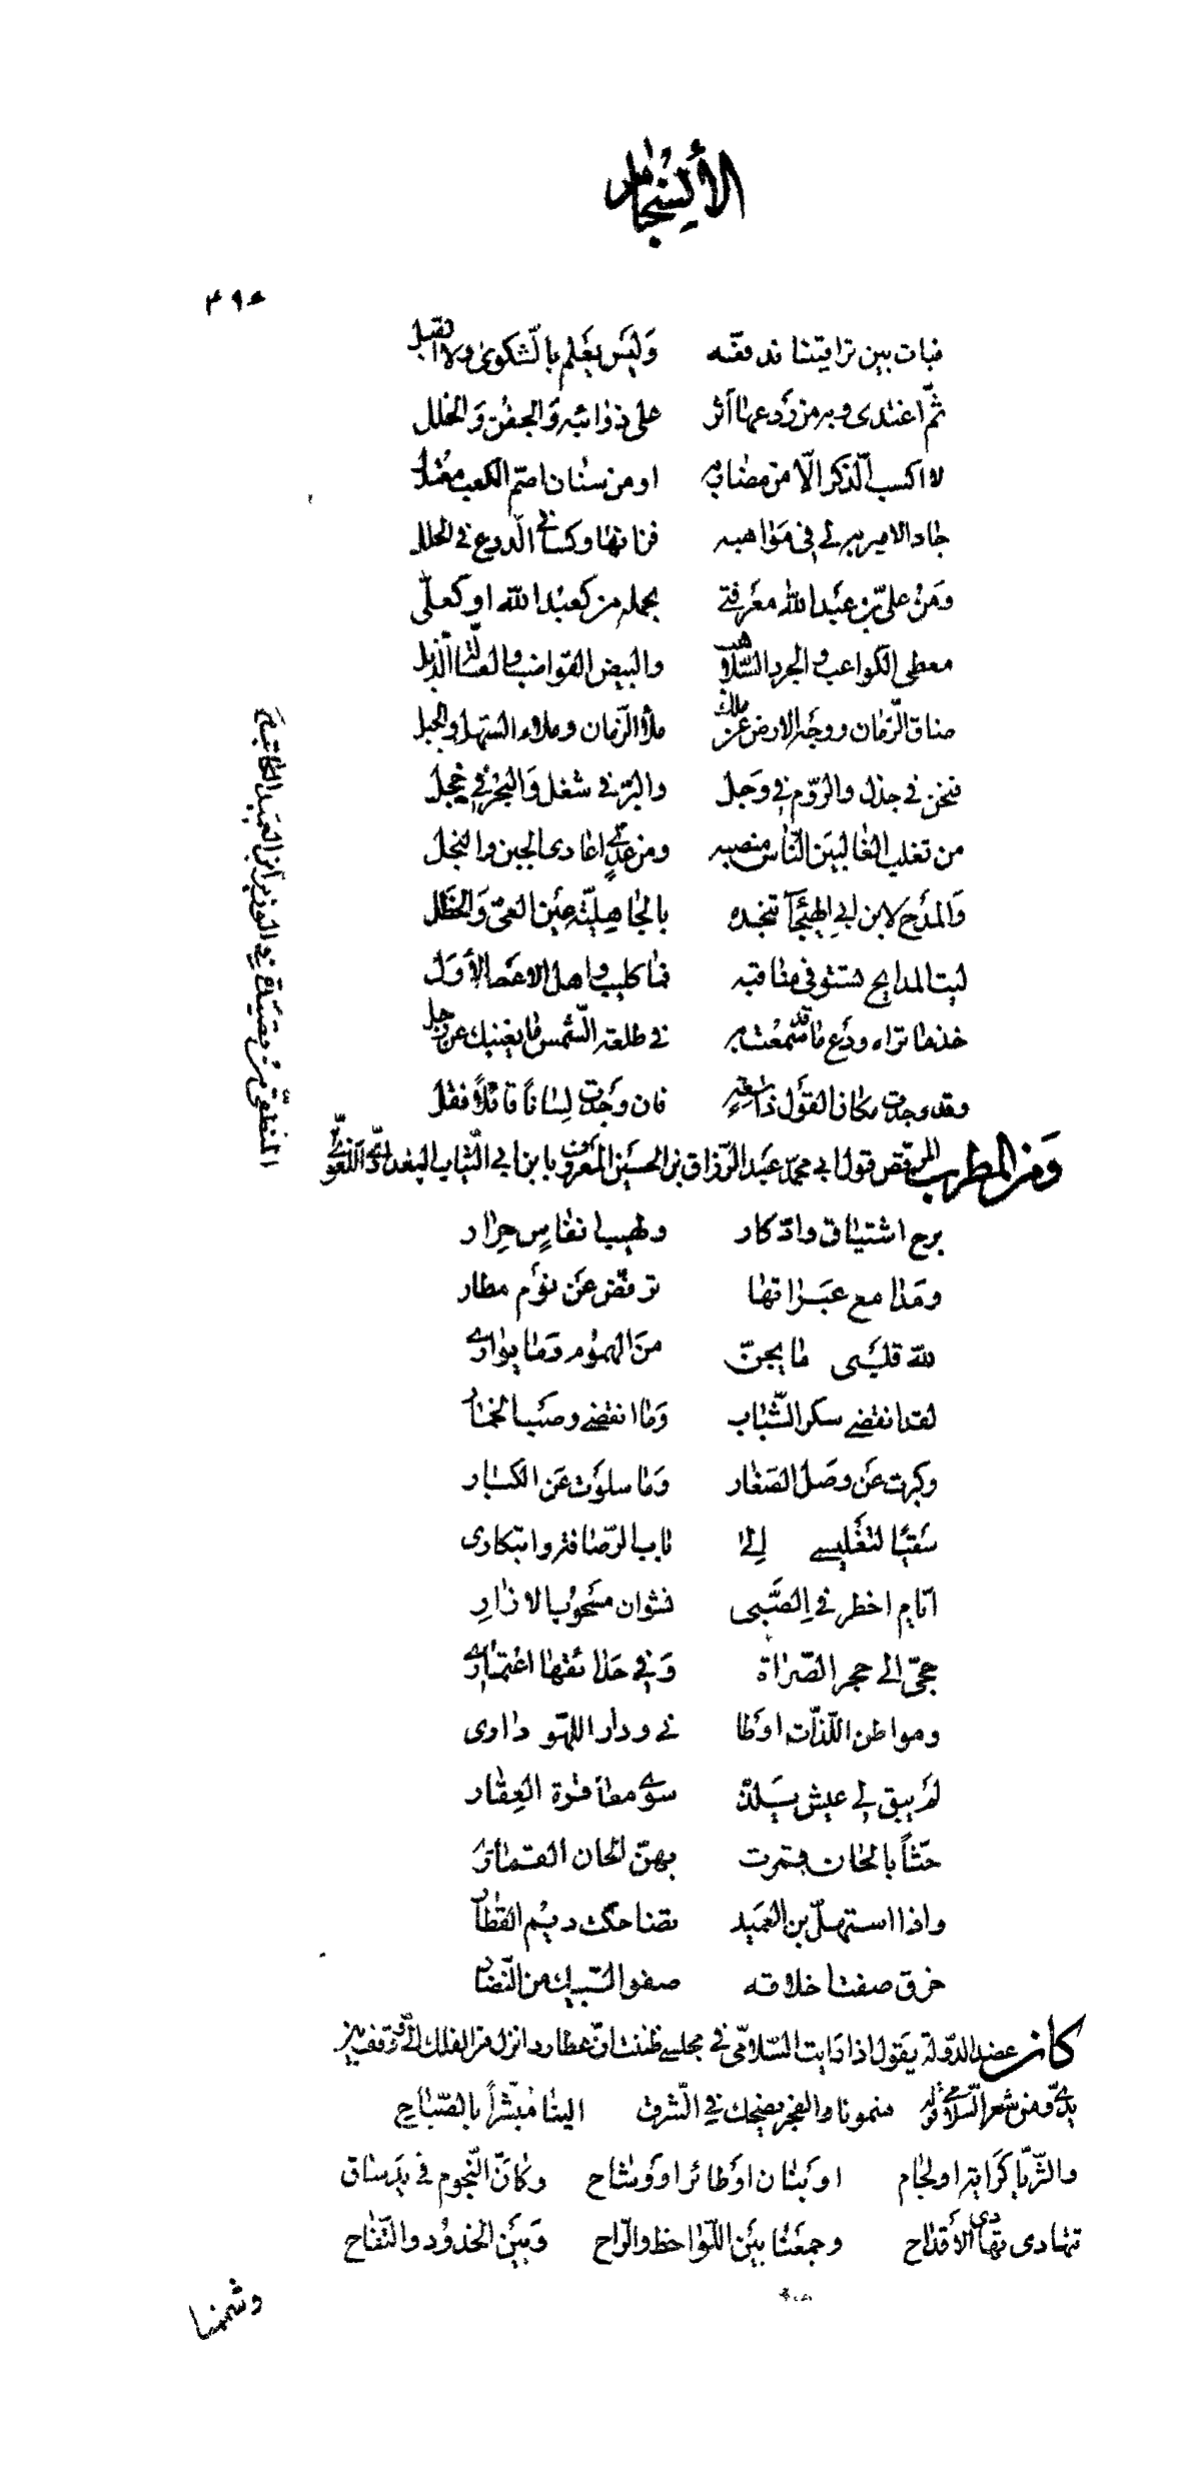 ٣٩٤
فبات بين تراقينا ندفعه وَليَس يَعلم بالشكوىٰ ولا القبل
ثمّ اغتدى وبه من رَدعها أثر على ذوائبه وَالجفن وَالخلل
لا اكسب الّذكر الّا من مضاربه او من سنان اصمّ الكعب معتدل
جاد الامير به لي في مَواهبه فزانها وكساني الّدرع في الحلل
وَمن علىّ بن عَبد الله معَرفتي بحمله من كعبْد الله او كعلىّ
معطى الكواعب والجرد السّلاهب والبيض القواضب والعسّالة الذبل
ضاق الزّمان ووجَه الارض عن ملك ملأ الزّمان وملاء السّهل والجبل
فنحن في جذل والرّوم في وَجل والبرّ في شغل وَالبحر في خجل
من تغلب الغالبين النّاس منصبه ومن عدىٍّ اعادى الجبن والبخل
وَالمدَح لابن ابي الهيَجآ تنجده بالجاهِليّة عيَن العىّ وَالخطَل
ليت المدايح تستوفى مناقبه فما كليب واهل الاعصر الأوَل
خذ ما تراه ودَع ما قد سَمعْت به في طلعة الشّمس ما يغنيك عن زحل
وقد وجدت مكان القول ذا سعَةٍ فان وَجَدت لِسانًا قائلًا فقل
وَمن المطرب المرقص قول ابي محمّد عبَد الرّزاق بن الحسَين المعَروف بابن ابي الثّياب البغدادي اللغوي
برح اشتياق وادّكار ولهيب انفاسٍ حِرار
ومَدامع عبَراتها ترفضّ عَن نوَم مطار
للّه قلبَى ما يجنّ منَ الهموُم وَما يوُارى
لقد انقضى سكر الشّباب وَما انقضى وصَب الخمار
وكبرت عَن وصَل الصّغار وَما سلوَت عَن الكبار
سَقيًا لتغَليسى الى باب الرّصافة وابتكارى
ايّام اخطر في الصَّبى نشوان مسَحوُب الازارِ
حجّى الى حجر الصّراة وَفي حَدائقها اعْتمارى
ومواطن اللّذّات اوَطا ني ودار اللهو دارى
لمَ يبق لي عيش يَلذّ سوى معاقرة العِقار
حثّاً بالحان قمرت بهنّ الحان القمارى
واذا استهلّ بن العَميد تضاحكت ديَم القطار
خرق صفت اخلاقه صفو السّبيك من النّضار
كان عضد الدّولة يقول اذا رَايت السّلامّى في مجلسى ظننت انّ عطارد انزل من الفلك الىّ ووقف بين
يدىّ ومن شعر السّلامى قوله فنموناوالفجر يضحك في الشّرق الينا مُبَشّراً بالصّباح
والثّريّا كرَاية او لجام او بَنان او طائر او وشاح وكانّ النّجوم في يدَ ساق
تتهادى تهادى الأقداح وجمعَنا بيَن اللّواحظ والرّاح وَبَيَن الخدوُد والتّفاح
وشممنا
المنطقىّ من قصيدة في الوزير ابن العميد الكاتب